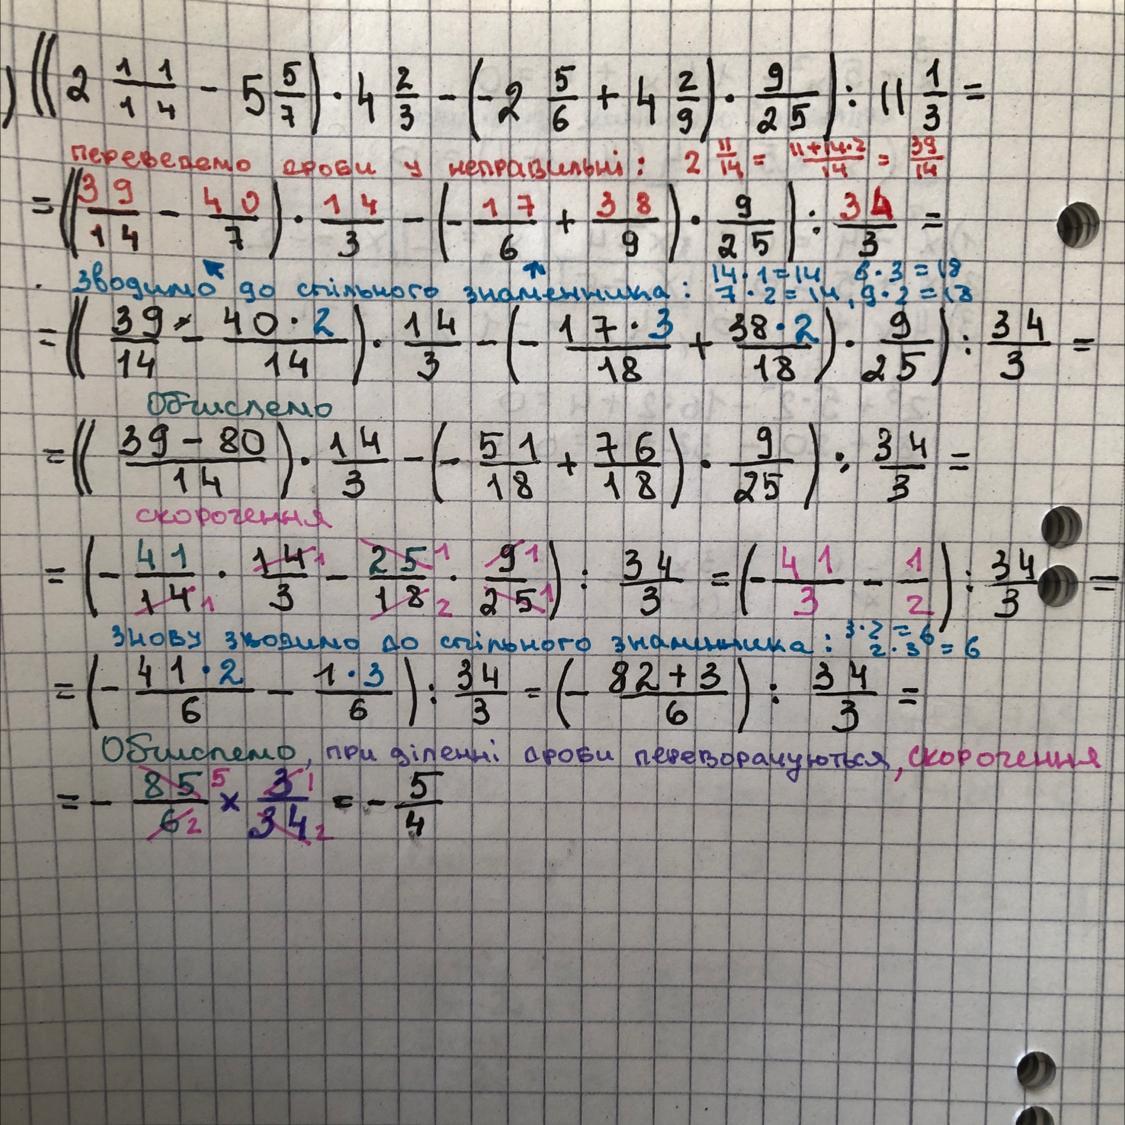 ) ((2 11/14 - 5 5/7) · 4 2/3 - (-2 5/6 + 4 2/9) · 9/25) : 11 1/3 =
переведемо дроби у неправильні: 2 11/14 = 11+14·2/14 = 39/14
= ((39/14 - 40/7) · 14/3 - (-17/6 + 38/9) · 9/25) : 34/3 =
зводимо до спільного знаменника: 14·1=14 6·3=18
7·2=14, 9·2=18
= ((39/14 - 40·2/14) · 14/3 - (-17·3/18 + 38·2/18) · 9/25) : 34/3 =
Обчислемо
= ((39-80/14) · 14/3 - (-51/18 + 76/18) · 9/25) : 34/3 =
скорочення
= (-41/14 1 · 14 1/3 - 25 1/18 2 · 9 1/25 1) : 34/3 = (-41/3 - 1/2) : 34/3 =
знову зводимо до спільного знаменника: 3·2=6
2·3=6
= (-41·2/6 - 1·3/6) : 34/3 = (-82+3/6) : 34/3 =
Обчислемо, при діленні дроби переворачуються, скорочення
= -85 5/6 2 × 3 1/34 2 = -5/4